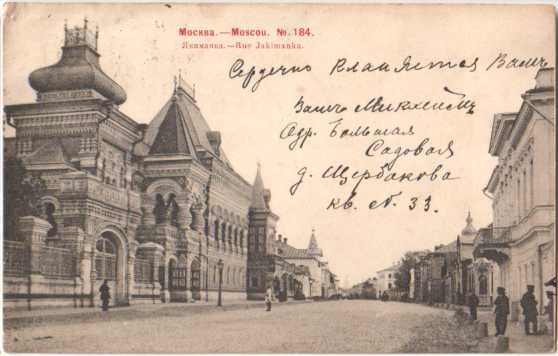 Москва.—Moscou. №. 184.
Якиманка.—Rue Jakimanka.
Сердечно кланяется Вамъ
Вашъ
Адр. Большая
Садовая
д. Щербакова
кв. № 33.